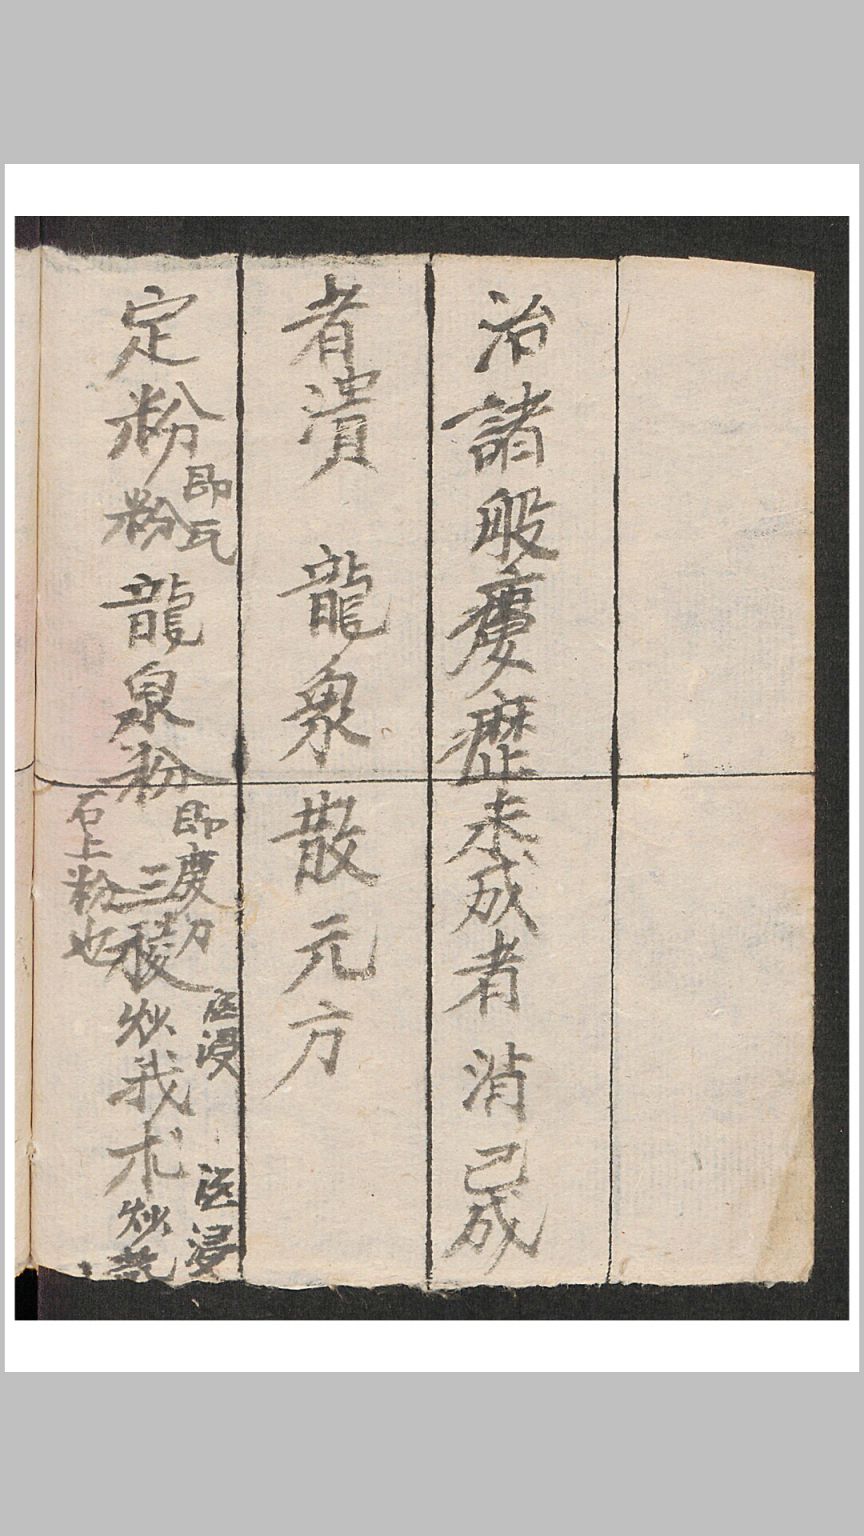 治諸般瘻癧未成者消已成
者潰　龍泉散元方
定粉即瓦粉龍泉粉即慶刀石上粉也三稜浸炒我朮浸炒